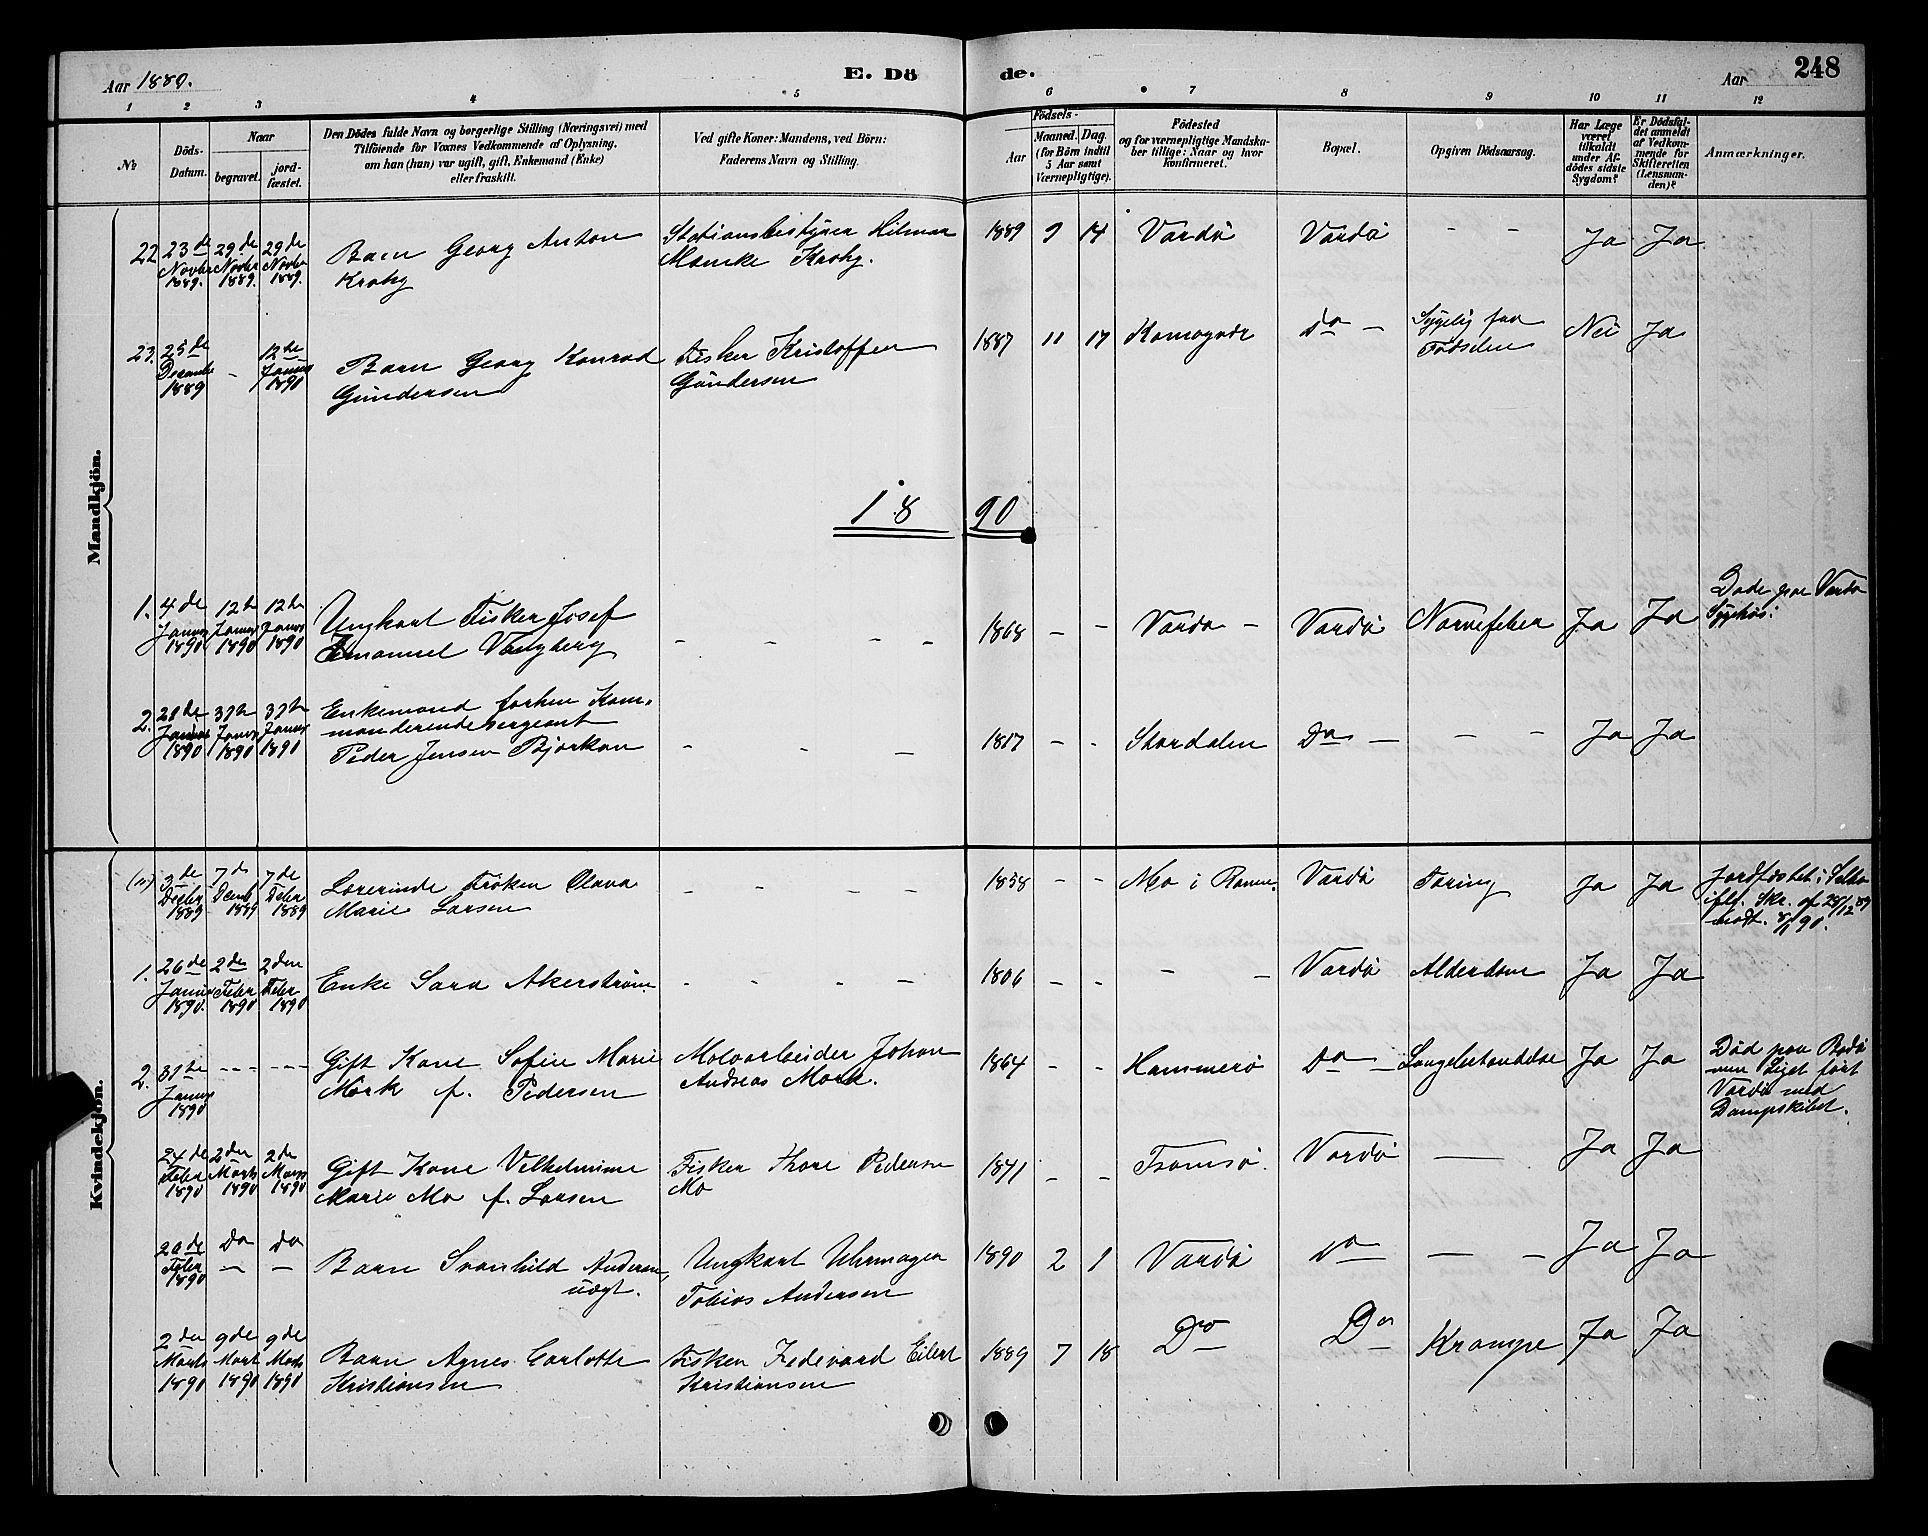 Aar 1889.
E. Dö
de.
Aar
248
1 2 3 4 5 6 7 8 9 10 11 12
No
Döds-
Datum.
Naar
begravet.
jord-
fæstet.
Den Dödes fulde Navn og borgerlige Stilling (Næringsvei) med
Tilföiende for Voxnes Vedkommende af Oplysning,
om han (hun) var ugift, gift, Enkemand (Enke)
eller fraskilt.
Ved gifte Koner: Mandens, ved Börn:
Faderens Navn og Stilling.
Födsels-
Aar
Maaned. Dag.
(for Börn indtil
5 Aar samt
Værnepligtige).
Födested
og for værnepligtige Mandska-
ber tillige: Naar og hvor
Konfirmeret.
Bopæl.
Opgiven Dödsaarsag.
Har Læge
været
tilkaldt
under Af-
dödes sidste
Sygdom?
Er Dödsfal-
det anmeldt
af Vedkom-
mende for
Skifteretten
(Lensman-
den)?
Anmærkninger.
Mandkjön.
22 23de Novbr 1889. 29de Novbr 1889. 29de Novbr 1889.
Barn Georg Anton
Krohg
Stationsbestyrer Hilmar
Krohg.
1889 9 14 Vardö Vardö - - Ja Ja
23. 25de Decembr 1889 - 12te Januar 1890
Barn Georg Konrad
Gundersen
Fisker Kristoffer
Gundersen
1887 11 17 Komagvær Do - Sygelig fra
Fødselen Nei Ja
1890
1. 4de Januar 1890 12te Januar 1890 12te Januar 1890
Ungkarl Fisker Josef
Emanuel Vangberg
- - - -
1868 - - Vardø - Vardö Nervefeber Ja Ja
Døde paa Vardø
Sygehus.
2. Januar 1890 Januar 1890 Januar 1890
Enkemand forhen Kom-
manderendesergeant
Peder Jensen Bjørkan
- - -
1817 - - Stordalen Do - - - Ja Ja
Kvindekjön.
3de Decbr 1889 7de Decbr 1889 7de 1889
Lærerinde Frøken Olava
Marie Larsen
- - - -
1858 - - Mo i Ranen Vardö Tæring Ja Ja
Jordfæstet i
ifølg. Skr. af 28/12 89
modt. 8/1 90.
1. 26de Januar 1890. 2den Febr 1890 2den Febr 1890
Enke Sara Akerstrøm
- - - -
1806 - - - - Vardö Alderdom Ja Ja
2. 31te Januar 1890 - - - - - -
Gift Kone Sofie Marie
Mork f. Pedersen
Moloarbeider Johan
Andreas Mork.
1864 - - Hammerö Do - Lungebetændelse Ja Ja
Död paa Bodö
men Liget fört
Vardö med
Dampskibet.
24de Febr 1890 2den Marts 1890 2de Marts 1890
Gift Kone Vilhelmine
Marie Mo f. Larsen
Fisker Thore Pedersen
Mo
1841 - - Tromsö. Vardö - Ja Ja
Febr 1890 Do - Do -
Barn Svanhild Andersen,
uægt.
Ungkarl Uhrmager
Tobias Andersen
1890 2 1 Vardö Do - - Ja Ja
2den Marts 1890 9de Marts 1890 9de Marts 1890
Barn Agnes Carlotte
Kristiansen
Fisker Eilert
Kristiansen
1889 7 18 Do Do Krampe Ja Ja